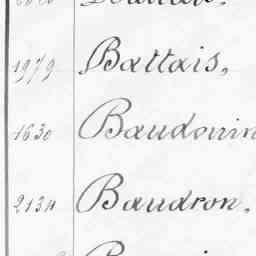 1979 Battais,
1630 Baudouin
2134 Baudron,